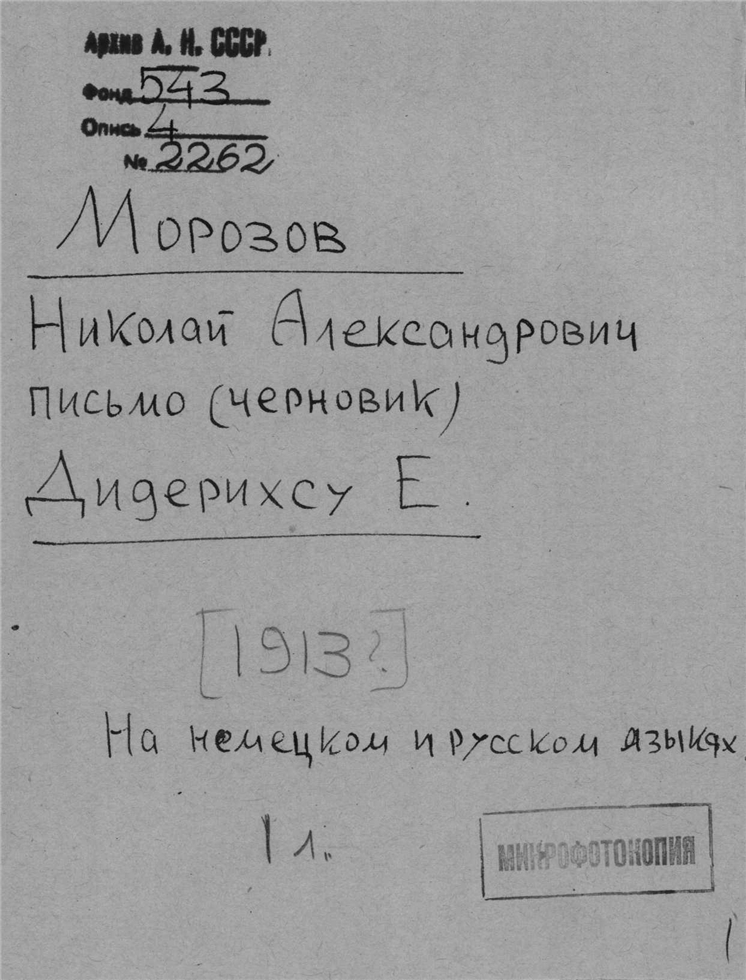 Архив А. Н. СССР.
Фонд 543
Опись 4
№ 2262
Морозов
Николай Александрович
письмо (черновик)
Дидерихсу Е.
[1913?]
На немецком и русском языках.
1 л.
МИКРОФОТОКОПИЯ
1